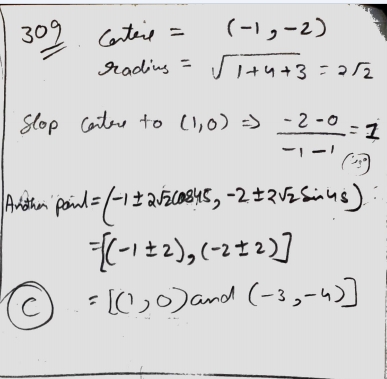 309 Centere = (-1, -2)
radius = √1+4+3 = 2√2
Slop centere to (1,0) ⇒ -2-0 / -1-1 = 1
(45°)
Another point = (-1 ± 2√2 cos45, -2 ± 2√2 Sin45)
= [(-1 ± 2), (-2 ± 2)]
(C) = [(1, 0) and (-3, -4)]